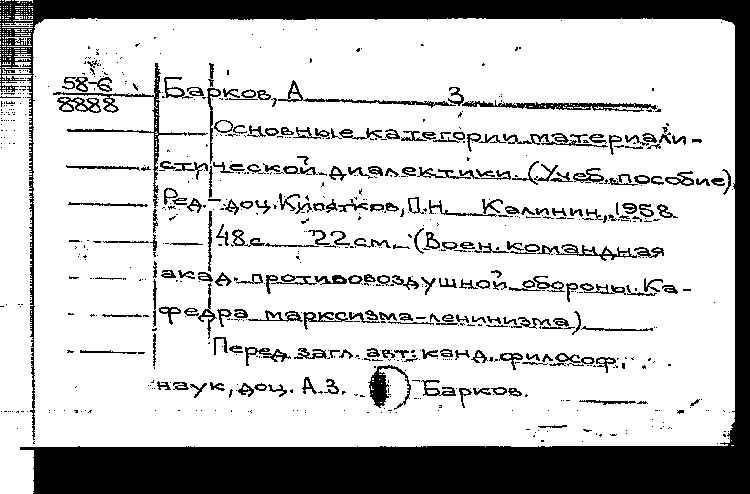 58-6
8888
Барков, А 3
Основные категории материали-
стической диалектики. (Учеб. пособие).
Ред.-доц. Кипятков, П.Н. Калинин, 1958
48 с. 22 см. (Воен. командная
акад. противовоздушной обороны. Ка-
федра марксизма-ленинизма)
Перед загл. авт.: канд. философ.
наук, доц. А.З. Барков.